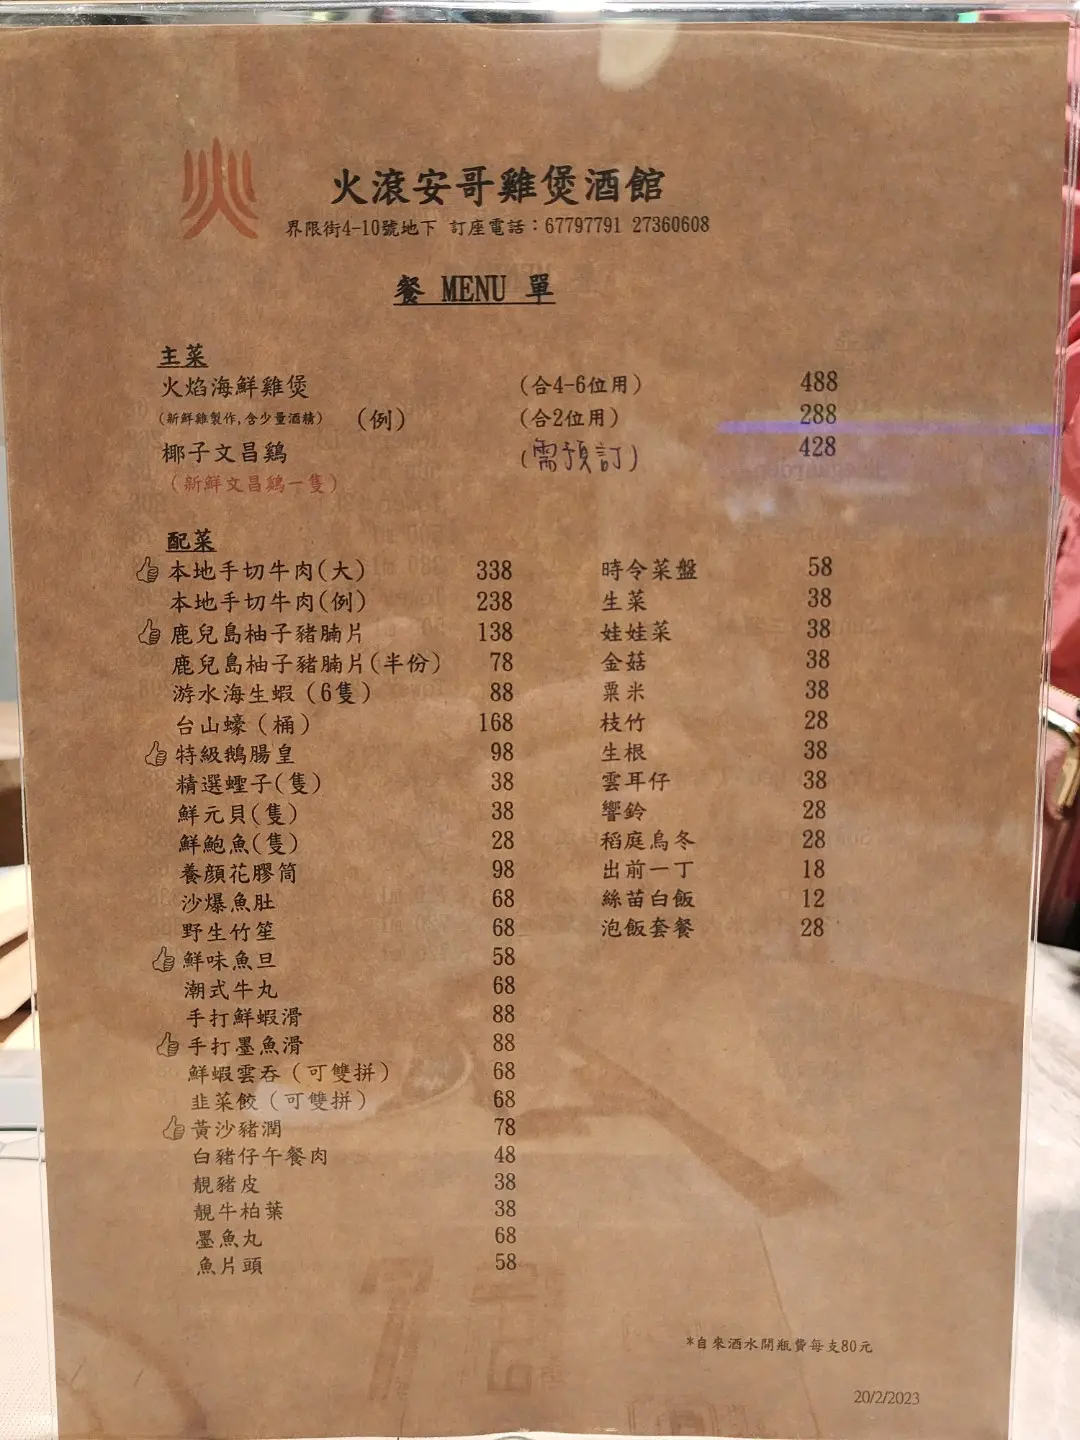 火滾安哥雞煲酒館
界限街4-10號地下 訂座電話：67797791 27360608
餐 MENU 單
主菜
火焰海鮮雞煲 (合4-6位用) 488
(新鮮雞製作,含少量酒精) (例) (合2位用) 288
椰子文昌鷄 (需預訂) 428
(新鮮文昌鷄一隻)
配菜
本地手切牛肉(大) 338
本地手切牛肉(例) 238
鹿兒島柚子豬腩片 138
鹿兒島柚子豬腩片(半份) 78
游水海生蝦 (6隻) 88
台山蠔 (桶) 168
特級鵝腸皇 98
精選蟶子(隻) 38
鮮元貝(隻) 38
鮮鮑魚(隻) 28
養顏花膠筒 98
沙爆魚肚 68
野生竹笙 68
鮮味魚旦 58
潮式牛丸 68
手打鮮蝦滑 88
手打墨魚滑 88
鮮蝦雲吞 (可雙拼) 68
韭菜餃 (可雙拼) 68
黃沙豬潤 78
白豬仔午餐肉 48
靚豬皮 38
靚牛柏葉 38
墨魚丸 68
魚片頭 58
時令菜盤 58
生菜 38
娃娃菜 38
金菇 38
粟米 38
枝竹 28
生根 38
雲耳仔 38
響鈴 28
稻庭烏冬 28
出前一丁 18
絲苗白飯 12
泡飯套餐 28
*自來酒水開瓶費每支80元
20/2/2023